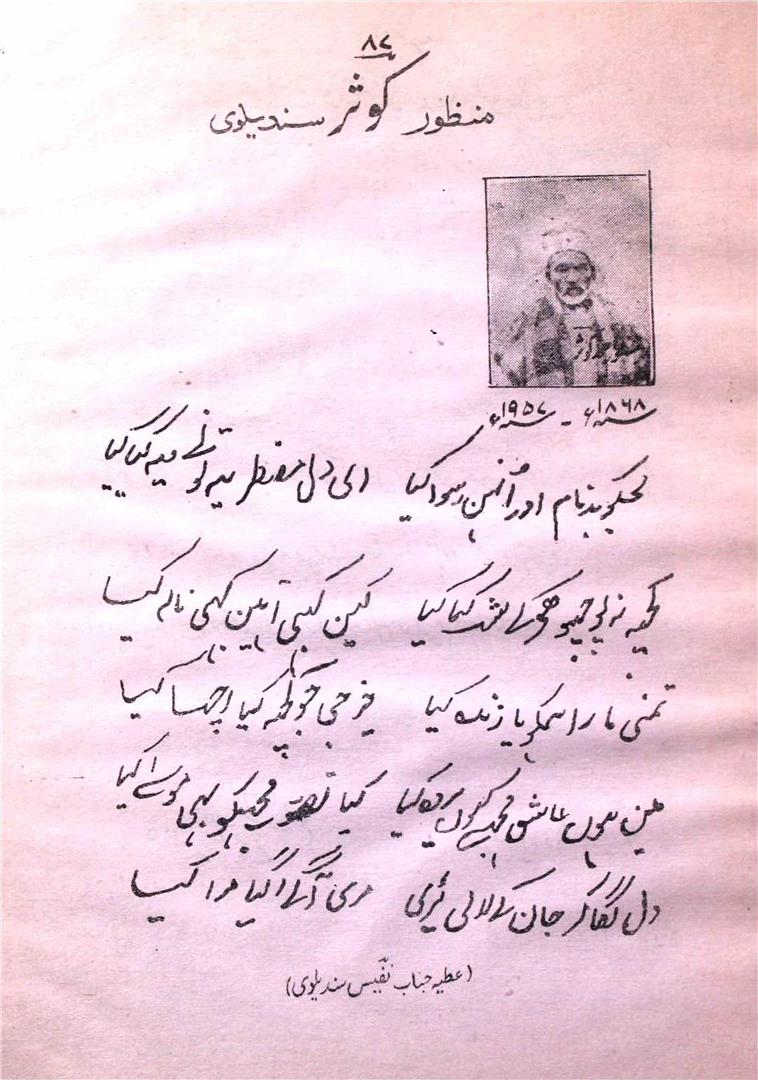 ۸۷
منظور کوثر سندیلوی
سنہ ۱۸۶۸ء - سنہ ۱۹۵۷ء
مجکو بدنام اور اُنہیں رسوا کیا ای دل مضطر یہ تونے کیا کیا
کچہ نہ پوچہو ہجر کی شب کیا کیا کہیں کہیں آہیں کہیں نالہ کیا
تمنی مارا ہمکو یا زندہ کیا خیر جی جو کچہ کیا اچہا کیا
میں ہوں عاشق مجہسے کیوں پردہ کیا کیا تصور مجہکو بہی موسےٰ کیا
دل لگا کر جان کے لالی پڑی مری آگے آگیا مرا کیا
(عطیہ جناب نفیس سندیلوی)